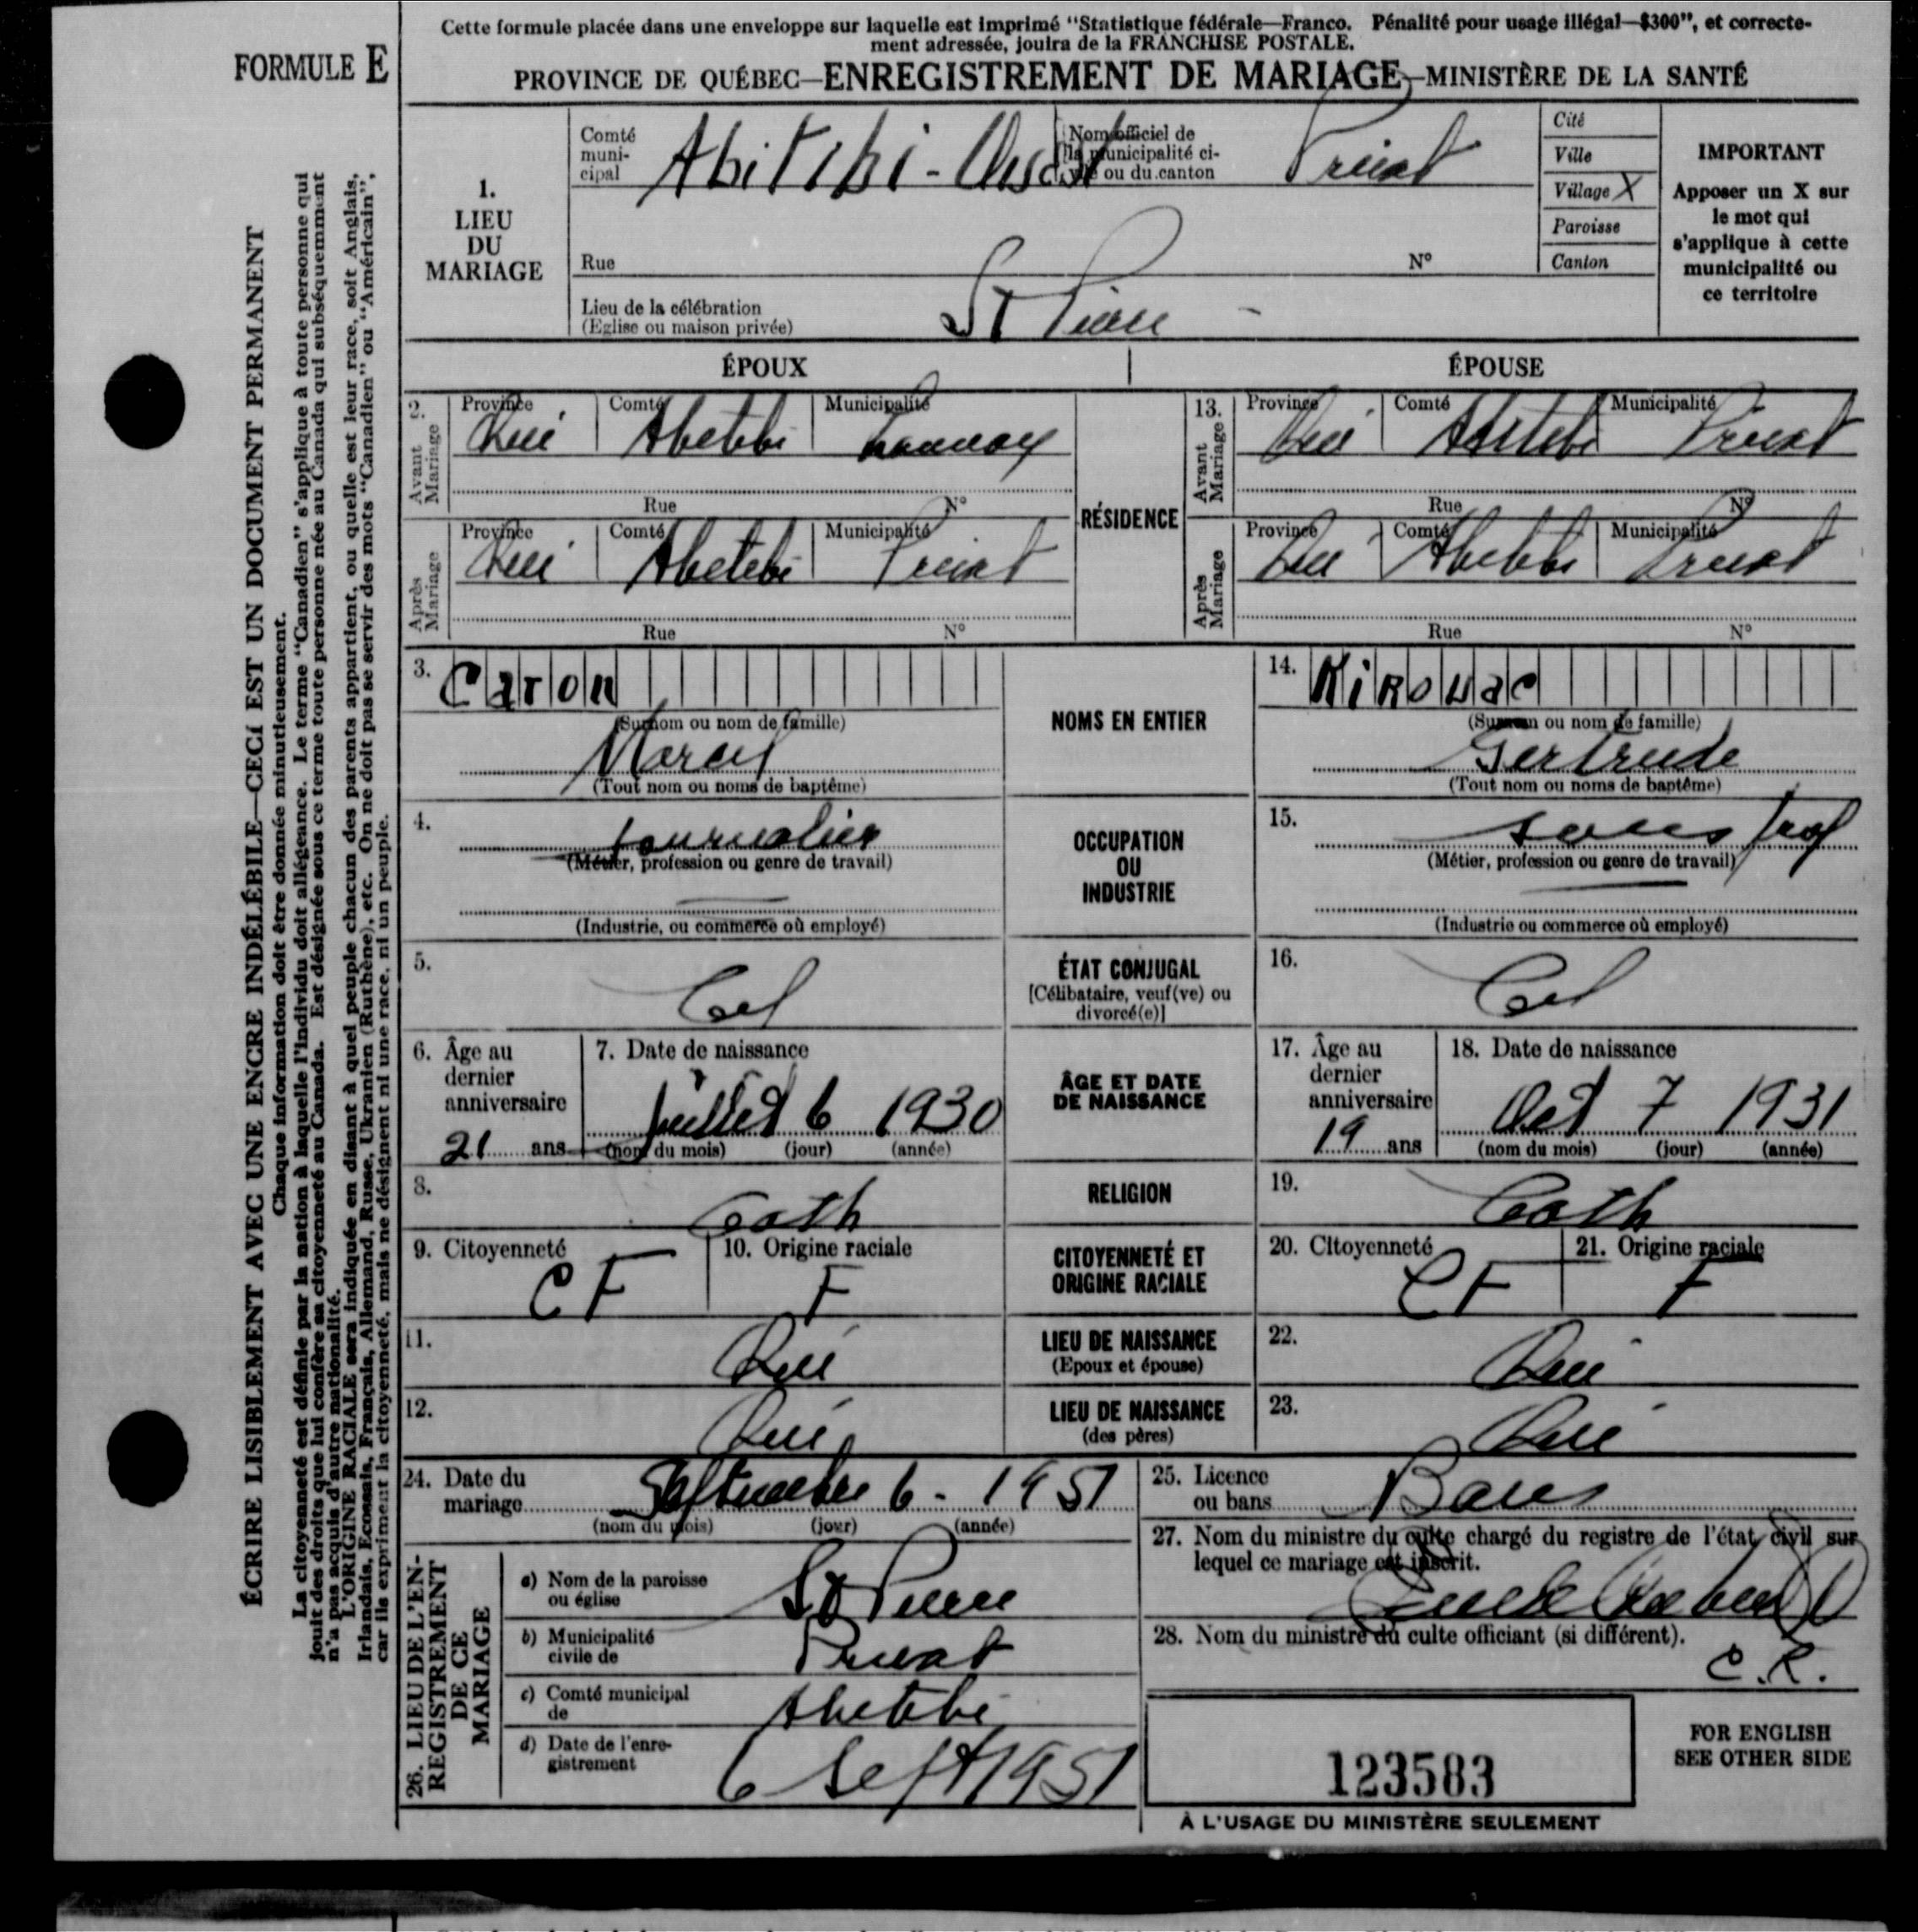 Cette formule placée dans une enveloppe sur laquelle est imprimé "Statistique fédérale—Franco. Pénalité pour usage illégal—$300", et correcte-
ment adressée, jouira de la FRANCHISE POSTALE.
FORMULE E
PROVINCE DE QUÉBEC—ENREGISTREMENT DE MARIAGE—MINISTÈRE DE LA SANTÉ
ÉCRIRE LISIBLEMENT AVEC UNE ENCRE INDÉLÉBILE—CECI EST UN DOCUMENT PERMANENT
Chaque information doit être donnée minutieusement.
La citoyenneté est définie par la nation à laquelle l'individu doit allégeance. Le terme "Canadien" s'applique à toute personne qui
jouit des droits que lui confère sa citoyenneté au Canada. Est désignée sous ce terme toute personne née au Canada qui subséquemment
n'a pas acquis d'autre nationalité.
L'ORIGINE RACIALE sera indiquée en disant à quel peuple chacun des parents appartient, ou quelle est leur race, soit Anglais,
Irlandais, Ecossais, Français, Allemand, Russe, Ukranien (Ruthène), etc. On ne doit pas se servir des mots "Canadien" ou "Américain",
car ils expriment la citoyenneté, mais ne désignent ni une race, ni un peuple.
1.
LIEU
DU
MARIAGE
Comté
muni-
cipal
Abitibi-Ouest
Nom officiel de
la municipalité ci-
vile ou du canton
Privat
Cité
Ville
Village X
Paroisse
Canton
IMPORTANT
Apposer un X sur
le mot qui
s'applique à cette
municipalité ou
ce territoire
Rue Nº
Lieu de la célébration
(Eglise ou maison privée)
St Pierre -
ÉPOUX ÉPOUSE
2. Avant Mariage
Province Comté Municipalité
Qué Abitibi
Rue Nº
Après Mariage
Province Comté Municipalité
Qué Abitibi Privat
Rue Nº
RÉSIDENCE
13. Avant Mariage
Province Comté Municipalité
Qué Abitibi Privat
Rue Nº
Après Mariage
Province Comté Municipalité
Qué Abitibi Privat
Rue Nº
3. Caron
(Surnom ou nom de famille)
Marcel
(Tout nom ou noms de baptême)
NOMS EN ENTIER
14. Kirouac
(Surnom ou nom de famille)
Gertrude
(Tout nom ou noms de baptême)
4. journalier
(Métier, profession ou genre de travail)
(Industrie, ou commerce où employé)
OCCUPATION
OU
INDUSTRIE
15. sans prof
(Métier, profession ou genre de travail)
(Industrie ou commerce où employé)
5. Cel
ÉTAT CONJUGAL
[Célibataire, veuf(ve) ou
divorcé(e)]
16. Cel
6. Âge au
dernier
anniversaire
21 ans
7. Date de naissance
juillet 6 1930
(nom du mois) (jour) (année)
ÂGE ET DATE
DE NAISSANCE
17. Âge au
dernier
anniversaire
19 ans
18. Date de naissance
Oct 7 1931
(nom du mois) (jour) (année)
8. Cath
RELIGION
19. Cath
9. Citoyenneté
CF
10. Origine raciale
F
CITOYENNETÉ ET
ORIGINE RACIALE
20. Citoyenneté
CF
21. Origine raciale
F
11. Qué
LIEU DE NAISSANCE
(Epoux et épouse)
22. Qué
12. Qué
LIEU DE NAISSANCE
(des pères)
23. Qué
24. Date du
mariage Septembre 6 - 1951
(nom du mois) (jour) (année)
25. Licence
ou bans Bans
26. LIEU DE L'EN-
REGISTREMENT
DE CE
MARIAGE
a) Nom de la paroisse
ou église
St Pierre
b) Municipalité
civile de
Privat
c) Comté municipal
de
Abitibi
d) Date de l'enre-
gistrement
6 Sept 1951
27. Nom du ministre du culte chargé du registre de l'état civil sur
lequel ce mariage est inscrit.
28. Nom du ministre du culte officiant (si différent).
123583
À L'USAGE DU MINISTÈRE SEULEMENT
FOR ENGLISH
SEE OTHER SIDE